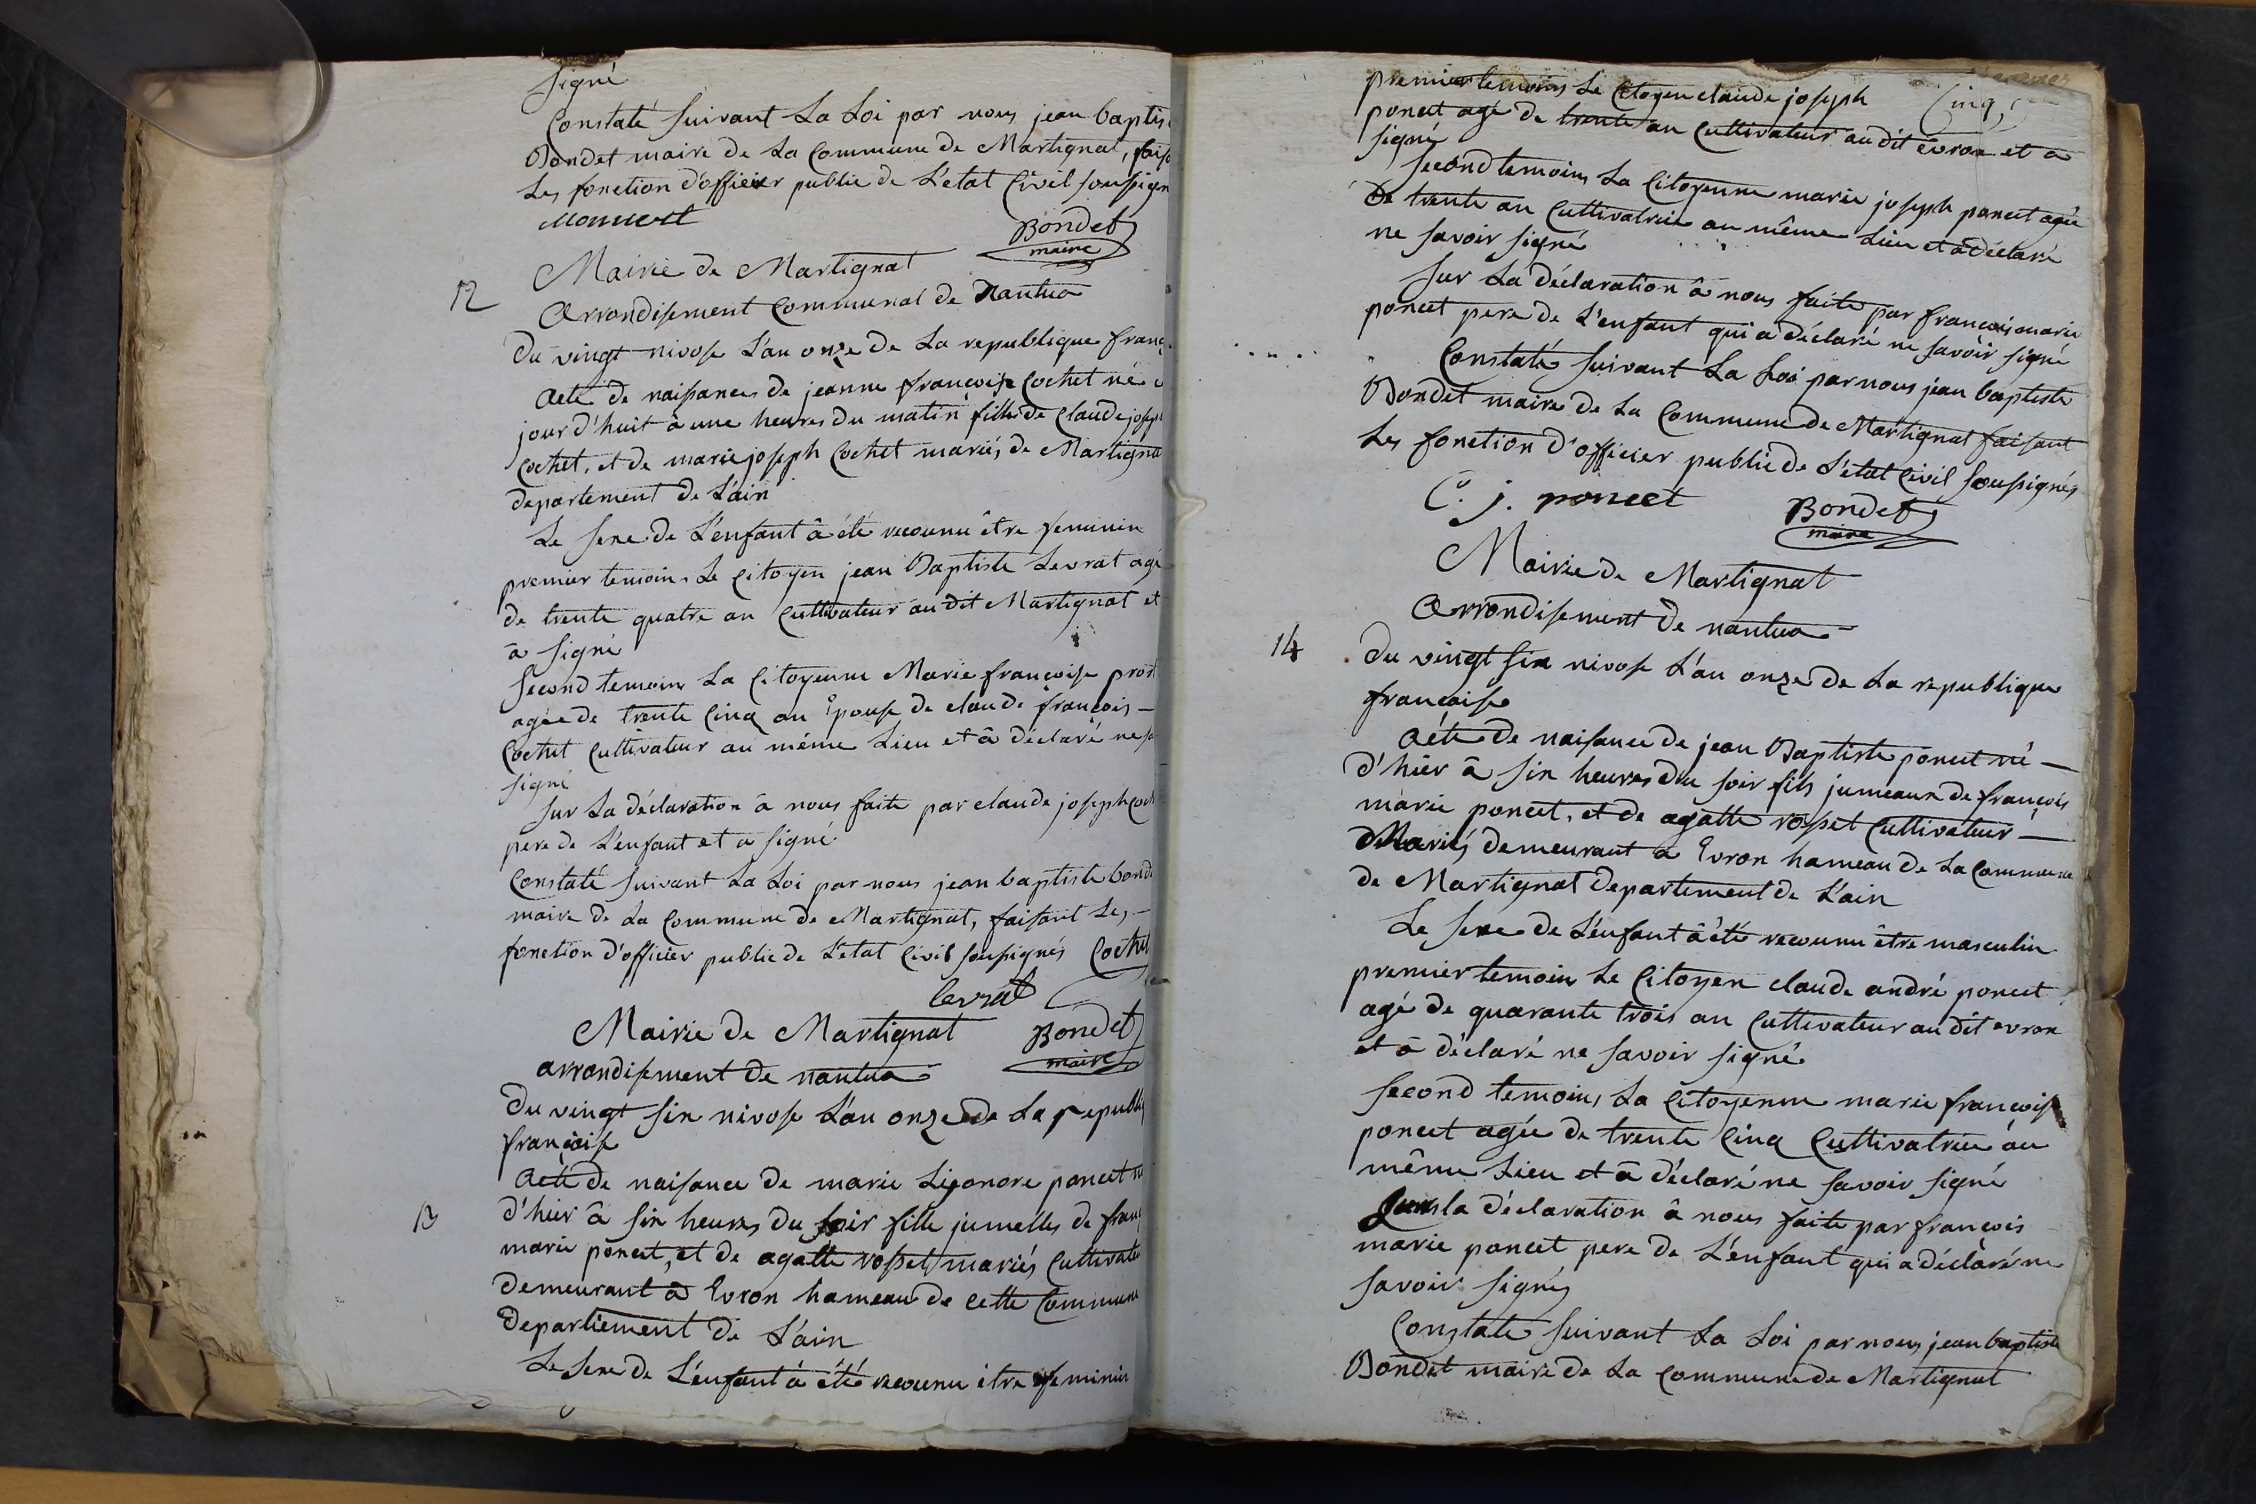 signé
Constaté suivant La Loi par nous jean baptis
Bondet maire de La Commune de Martignat, fais
Les fonction d'officier public de L'etat Civil soussigné
Bondet
maire
Mairie de Martignat
12
Arrondissement Communal de Nantua
Du vingt nivose L'an onze de La republique franç
Acte de naissance de jeanne françoise Cochet né
jour d'huit à une heures du matin fille de Claude joseph
Cochet, et de marie joseph Cochet mariés, de Martignat
departement de L'ain
Le sexe de L'enfant à été reconnu être feminin
premier temoin, Le Citoyen jean Baptiste Levrat agé
de trente quatre an Cultivateur audit Martignat et
à signé
second temoins La Citoyenne Marie françoise
agée de trente Cinq an Epouse de claude françois
Cochet Cultivateur au même Lieu et à déclaré ne
signé
sur La déclaration à nous faite par claude joseph Coch
pere de L'enfant et a signé
Constaté suivant La Loi par nous jean baptiste bond
maire de La Commune de Martignat, faisant Les
fonction d'officier public de L'etat Civil soussignés Cochet
levrat
Mairie de Martignat
Bondet
maire
arrondissement de nantua
Du vingt six nivose L'an onze de La republiq
françoise
Acte de naissance de marie Ligonore poncet
13
d'hier à six heures du soir fille jumelles de franç
marie poncet, et de agatte rosset mariés Cultivateu
demeurant à Evron hameau de cette Commune
departiement de L'ain
Le sexe de L'enfant à été reconnu être feminin
premier temoins Le Citoyen claude joseph
Cinq
poncet agé de trente an Cultivateur audit evron et a
signé
second temoins La Citoyenne marie joseph poncet agée
De trente an Cultivatrice au même Lieu et à déclaré
ne savoir signé
sur La déclaration à nous faite par françois marie
poncet pere de L'enfant qui a déclaré ne savoir signé
Constaté suivant La Loi par nous jean baptiste
Bondet maire de La Commune de Martignat faisant
Les fonction d'officier public de L'etat Civil soussignés
C. j. poncet
Bondet
maire
Mairie de Martignat
Arrondissement de nantua
14
Du vingt six nivose L'an onze de La republique
françoise
Acte de naissance de jean Baptiste poncet né
d'hier à six heures du soir fils jumeaux de françois
marie poncet, et de agatte rosset Cultivateur
Mariés demeurant à Evron hameau de La Commune
de Martignat departement de L'ain
Le sexe de L'enfant à été reconnu être masculin
premier temoin Le Citoyen claude andré poncet
agé de quarante trois an Cultivateur audit evron
et à déclaré ne savoir signé
second temoins La Citoyenne marie françoise
poncet agée de trente Cinq Cultivatrice au
même Lieu et à déclaré ne savoir signé
sur la déclaration à nous faite par françois
marie poncet pere de L'enfant qui a déclaré ne
savoir signés
Constaté suivant La Loi par nous jean baptiste
Bondet maire de La Commune de Martignat